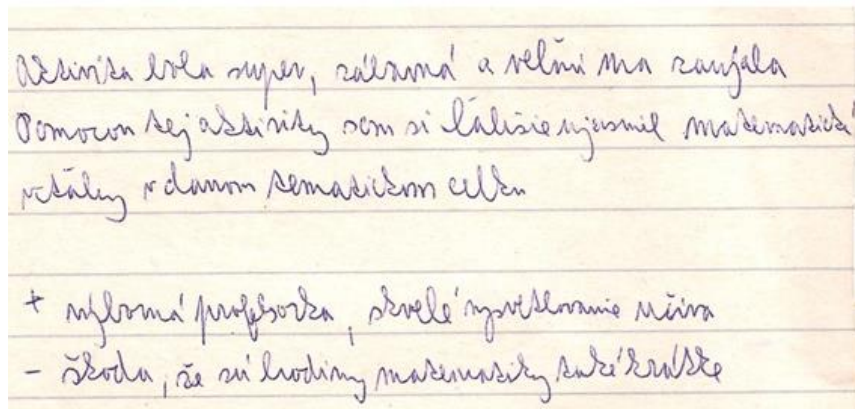 Aktivita bola super, zábavná a veľmi ma zaujala
Pomocou tej aktivity som si ľahšie ujasnil matematické
vzťahy v danom tematickom celku
+ výborná profesorka, skvelé vysvetlovanie učiva
- škoda, že sú hodiny matematiky také krátke